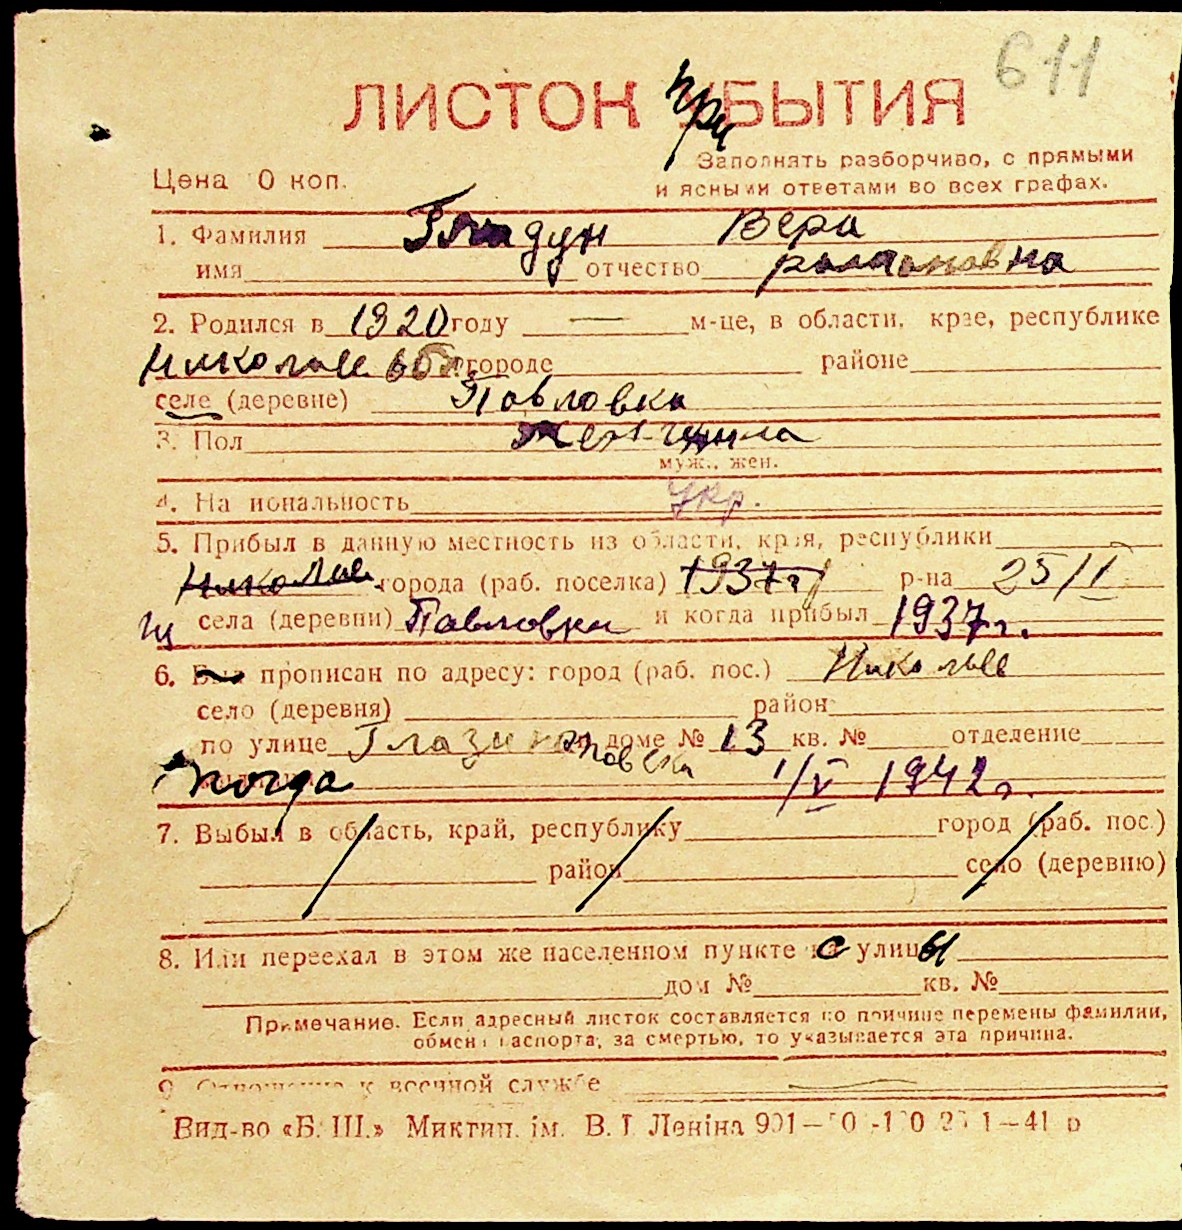 611
ЛИСТОК УБЫТИЯ
при
Заполнять разборчиво, с прямыми
и ясными ответами во всех графах.
Цена 0 коп.
1. Фамилия Вера
имя отчество романовна
2. Родился в 1920 году — м-це, в области, крае, республике
Николаев обл городе районе
селе (деревне) Павловка
3. Пол Женщина
муж., жен.
4. На иональность Укр.
5. Прибыл в данную местность из области, края, республики
Николаев города (раб. поселка) 1937г р-на 25/I
из села (деревни) Павловки и когда прибыл 1937г.
6. Был прописан по адресу: город (раб. пос.) Николаев
село (деревня) район
по улице дом № 13 кв. № отделение
когда 1/V 1942г.
7. Выбыл в область, край, республику город (раб. пос.)
район село (деревню)
8. Или переехал в этом же населенном пункте с улицы
дом № кв. №
Примечание. Если адресный листок составляется по причине перемены фамилии,
обмен паспорта, за смертью, то указывается эта причина.
9 Отношение к военной службе
Вид-во «Б. Ш.» Миктип. ім. В. І. Леніна 901